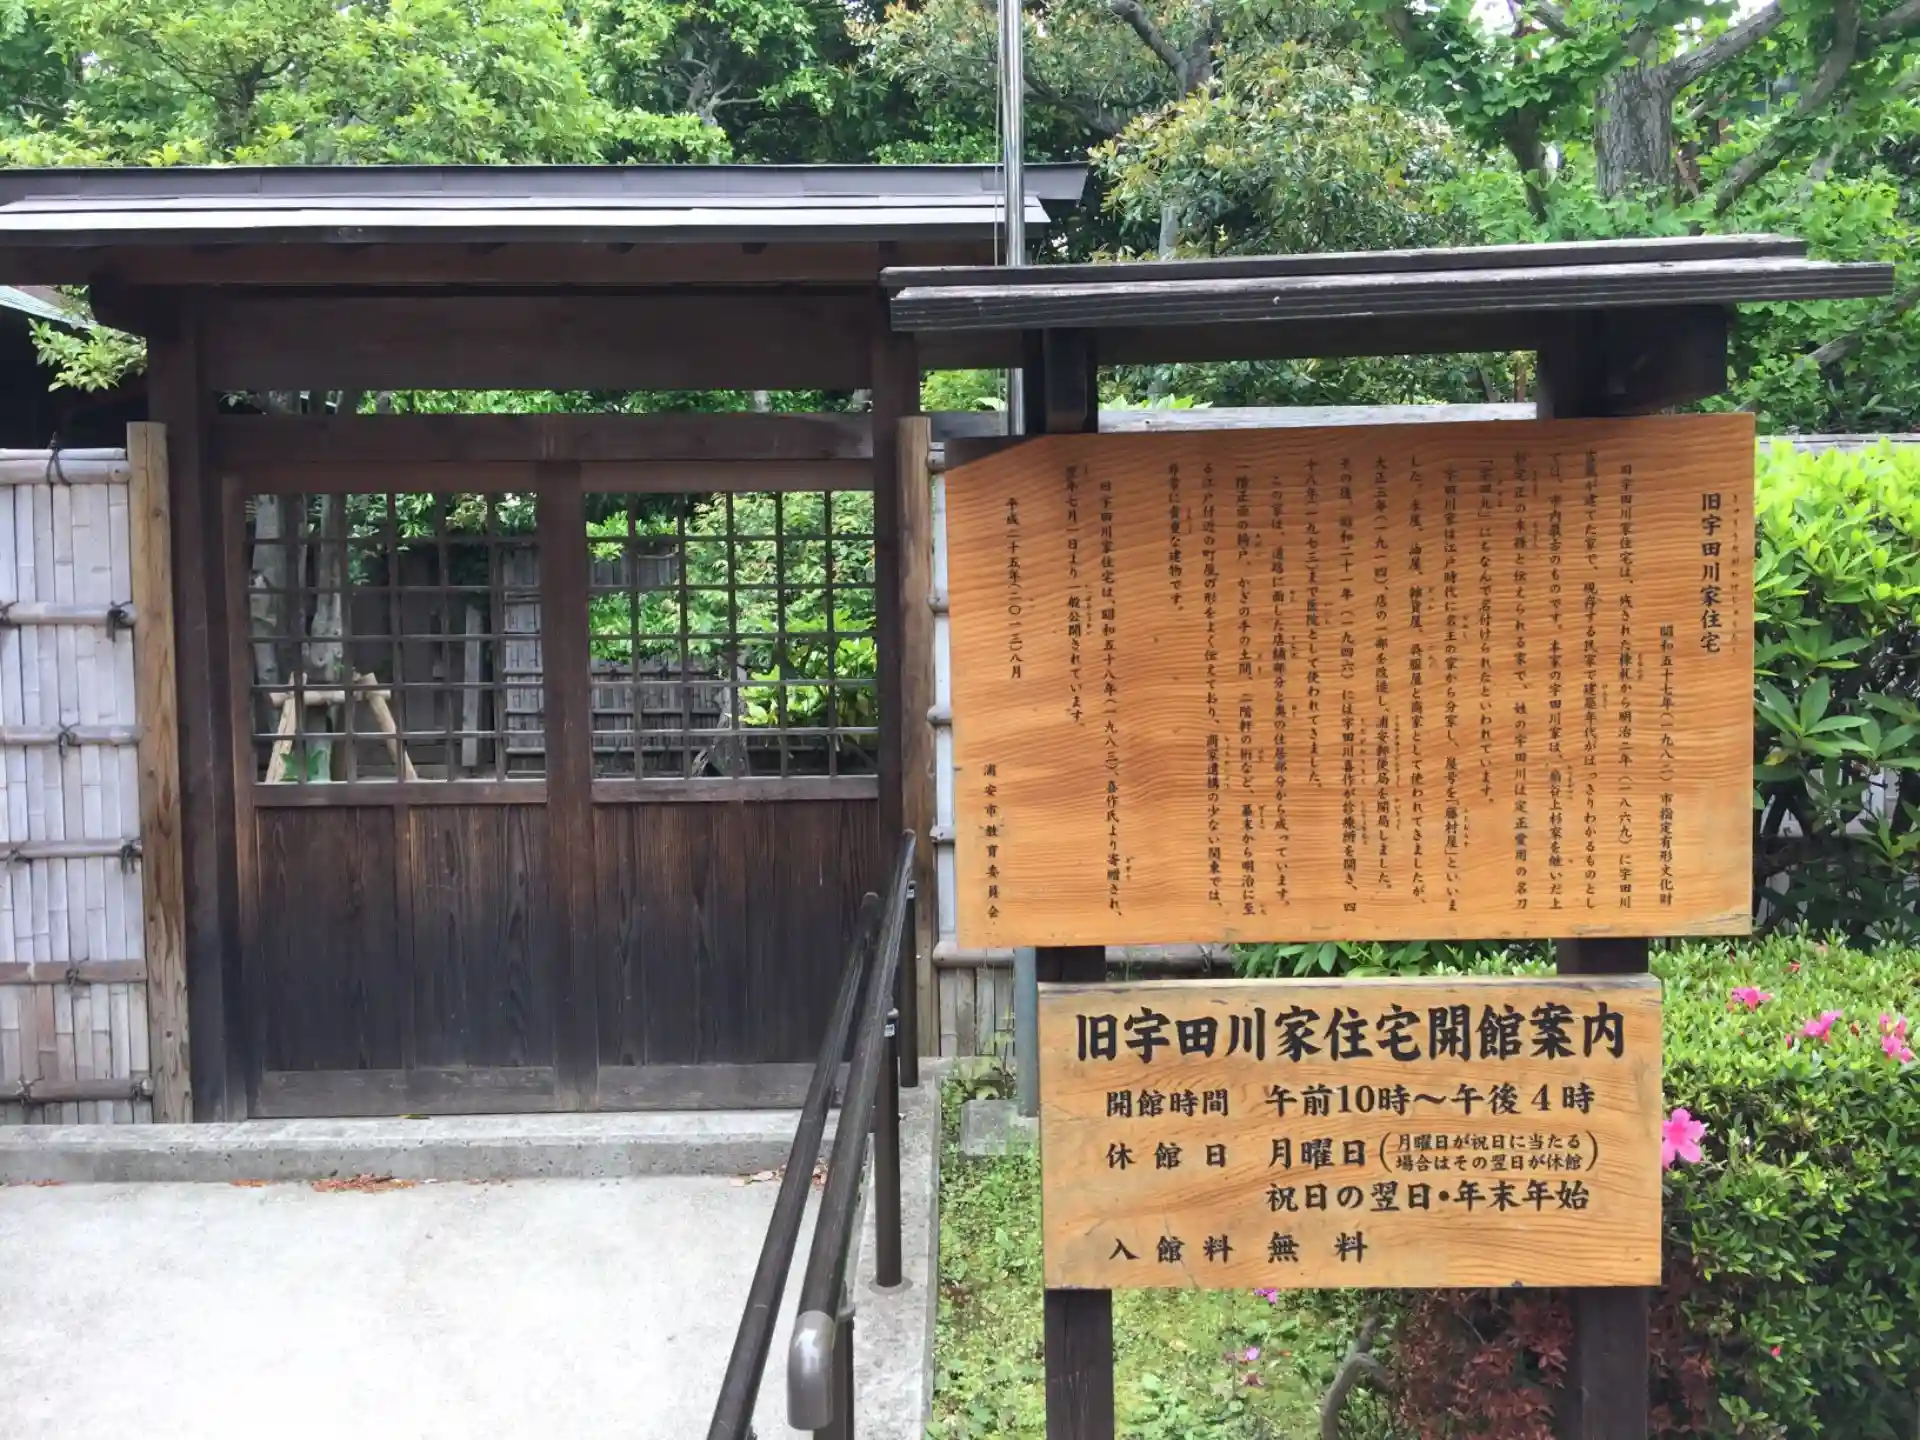 旧宇田川家住宅
きゅううだがわけじゅうたく
昭和五十七年(一九八二)市指定有形文化財
旧宇田川家住宅は、残された棟札から明治二年(一八六九)に宇田川
が建てた家で、現存する民家で建築年代がはっきりわかるものとし
ては、市内最古のものです。本家の宇田川家は、扇谷上杉家を継いだ上
杉定正の末裔と伝えられる家で、姓の宇田川は定正愛用の名刀
「宇田丸」にちなんで名付けられたといわれています。
宇田川家は江戸時代に名主の家から分家し、屋号を「藤村屋」といいま
した。米屋、油屋、雑貨屋、呉服屋と商家として使われてきましたが、
大正三年(一九一四)、店の一部を改造し、浦安郵便局を開局しました。
その後、昭和二十一年(一九四六)には宇田川喜作が診療所を開き、四
十八年(一九七三)まで医院として使われてきました。
この家は、道路に面した店舗部分と奥の住居部分から成っています。
一階正面の揚戸、かぎの手の土間、二階軒の桁など、幕末から明治に至
る江戸付近の町屋の形をよく伝えており、商家遺構の少ない関東では、
非常に貴重な建物です。
旧宇田川家住宅は、昭和五十八年(一九八三)、喜作氏より寄贈され、
翌年七月一日より一般公開されています。
平成二十五年(二〇一三)八月
浦安市教育委員会
旧宇田川家住宅開館案内
開館時間 午前10時～午後4時
休館日 月曜日(月曜日が祝日に当たる
場合はその翌日が休館)
祝日の翌日・年末年始
入館料 無料